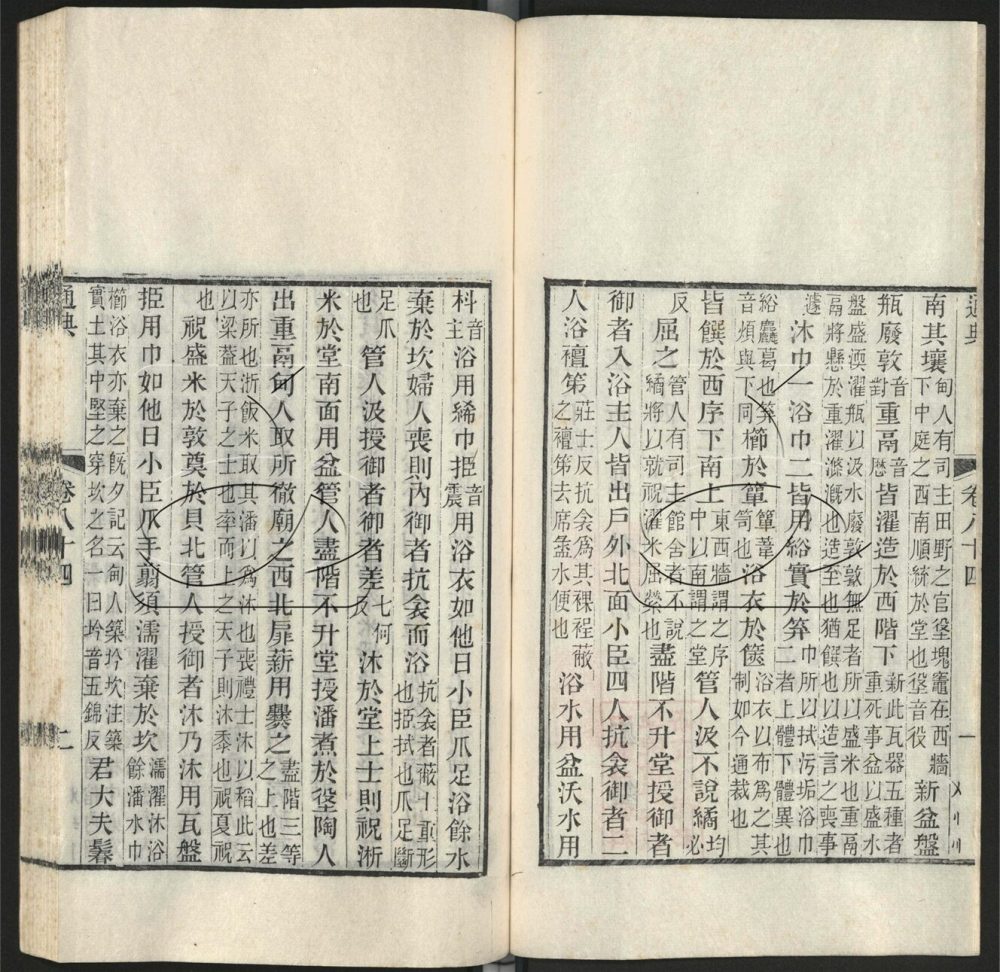 通典 卷八十四 一
南其壤甸人有司主田野之官垼塊竈在西牆下中庭之西南順統於堂也垼音役新盆盤
瓶廢敦音對重鬲音歷皆濯造於西階下新此瓦器五種者重死事盆以盛水
盤盛渜濯瓶以汲水廢敦敦無足者所以盛米也重鬲鬲將懸於重濯滌漑也造至也猶饌也以造言之喪事
遽沐巾一浴巾二皆用綌實於笲巾所以拭污垢浴巾二者上體下體異也
綌麤葛也笲音煩與下同櫛於簞簞葦笥也浴衣於篋浴衣以布為之其制如今通裁也
皆饌於西序下南上東西牆謂之序中以南謂之堂管人汲不說繘均必
反屈之管人有司主館舍者不說繘將以就祝濯米屈縈也盡階不升堂授御者
御者入浴主人皆出戶外北面小臣四人抗衾御者二
人浴襢笫莊士反抗衾為其裸裎蔽之襢笫去席盝水便也浴水用盆沃水用
枓音主浴用絺巾挋音震用浴衣如他日小臣爪足浴餘水
棄於坎婦人喪則內御者抗衾而浴抗衾者蔽上重形也挋拭也爪足斷
足爪也管人汲授御者御者差七何反沐於堂上士則祝淅
米於堂南面用盆管人盡階不升堂授潘煮於垼陶人
出重鬲甸人取所徹廟之西北厞薪用爨之盡階三等之上也差
亦所也浙飯米取其潘以為沐也喪禮士沐以稻此云以梁蓋天子之士也率而上之天子則沐黍也祝夏祝
也祝盛米於敦奠於貝北管人授御者沐乃沐用瓦盤
挋用巾如他日小臣爪手翦須濡濯棄於坎濡濯沐浴餘潘水巾
櫛浴衣亦棄之旣夕記云甸人築坅坎注築實土其中堅之穿坎之名一曰坅音五錦反君大夫鬊
通典 卷八十四 二